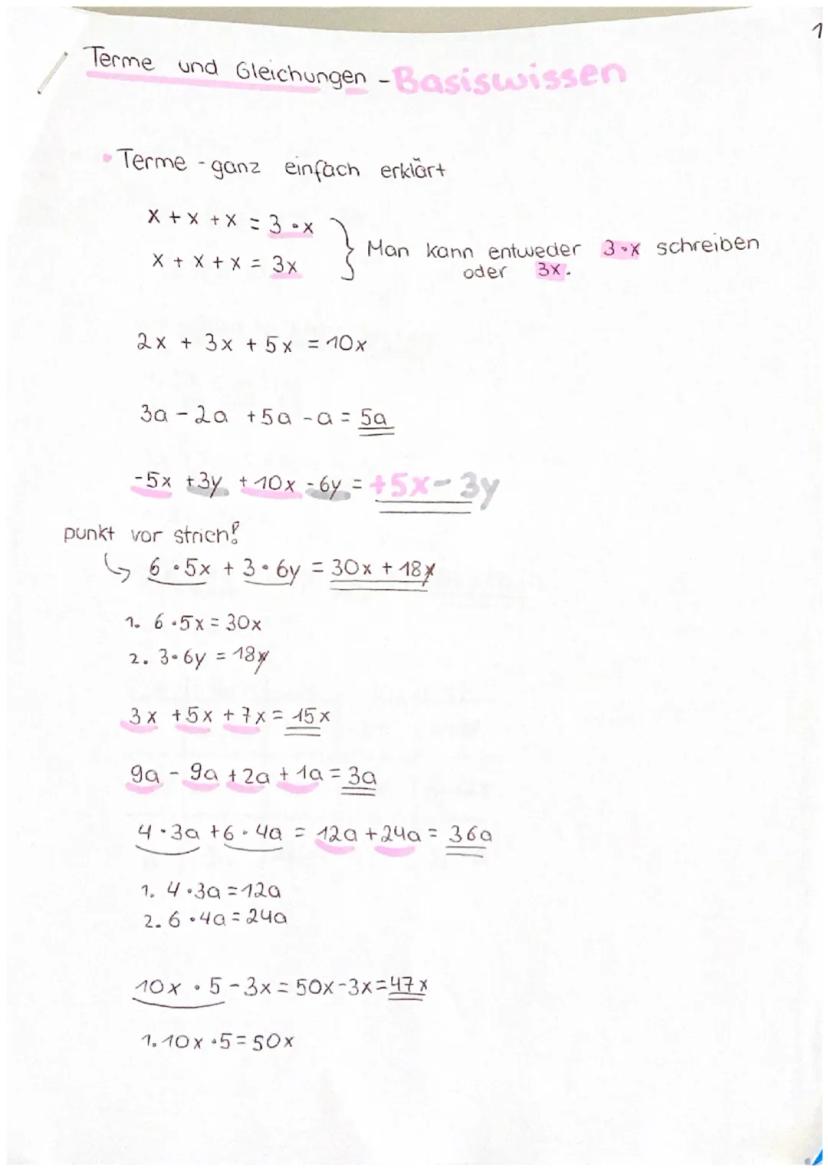 1
Terme und Gleichungen - Basiswissen
Terme - ganz einfach erklärt
x + x + x = 3 · x
x + x + x = 3x
} Man kann entweder 3 · x schreiben
oder 3x.
2x + 3x + 5x = 10x
3a - 2a + 5a - a = 5a
-5x + 3y + 10x - 6y = +5x - 3y
punkt vor strich!
↳ 6 · 5x + 3 · 6y = 30x + 18y
1. 6 · 5x = 30x
2. 3 · 6y = 18y
3x + 5x + 7x = 15x
9a - 9a + 2a + 1a = 3a
4 · 3a + 6 · 4a = 12a + 24a = 36a
1. 4 · 3a = 12a
2. 6 · 4a = 24a
10x · 5 - 3x = 50x - 3x = 47x
1. 10x · 5 = 50x